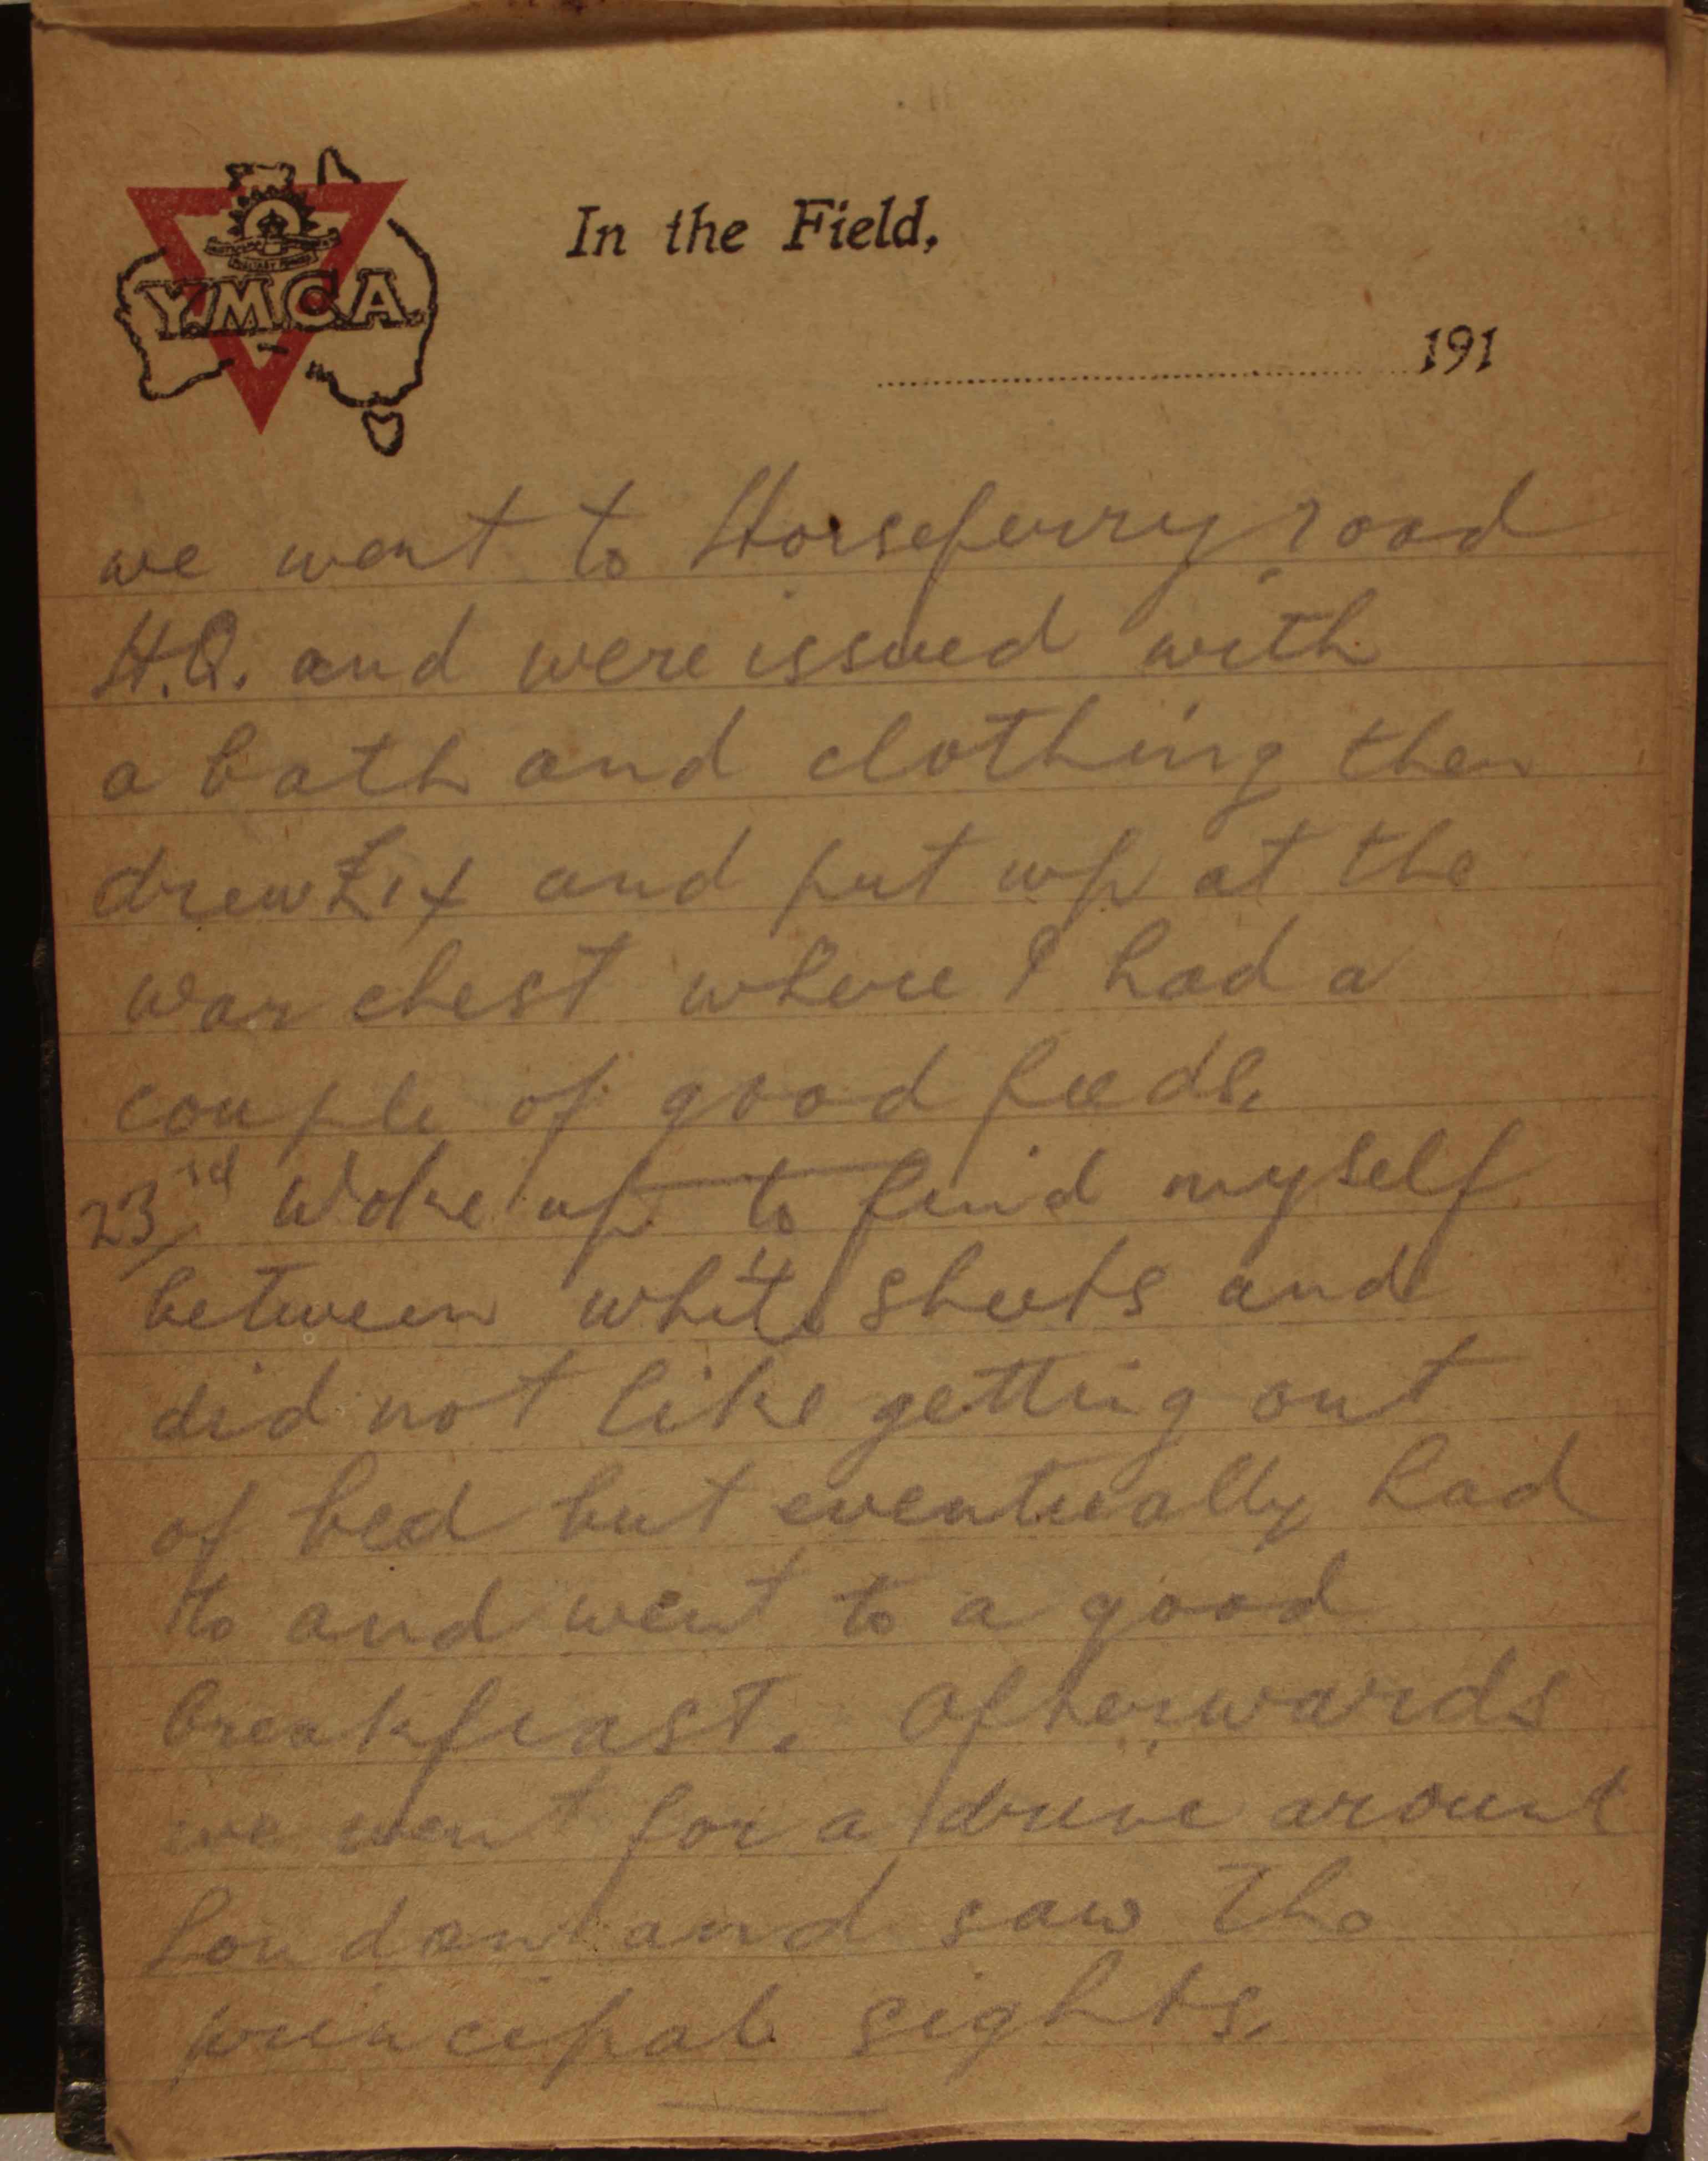 Y.M.C.A.
In the Field,
191
we went to Horseferry road
H.Q. and were issued with
a bath and clothing then
drew and put up at the
war chest where I had a
couple of good feeds.
23rd Woke up to find myself
between white sheets and
did not like getting out
of bed but eventually had
to and went to a good
breakfeast. Afterwards
we went for a drive around
London and saw the
principal sights.